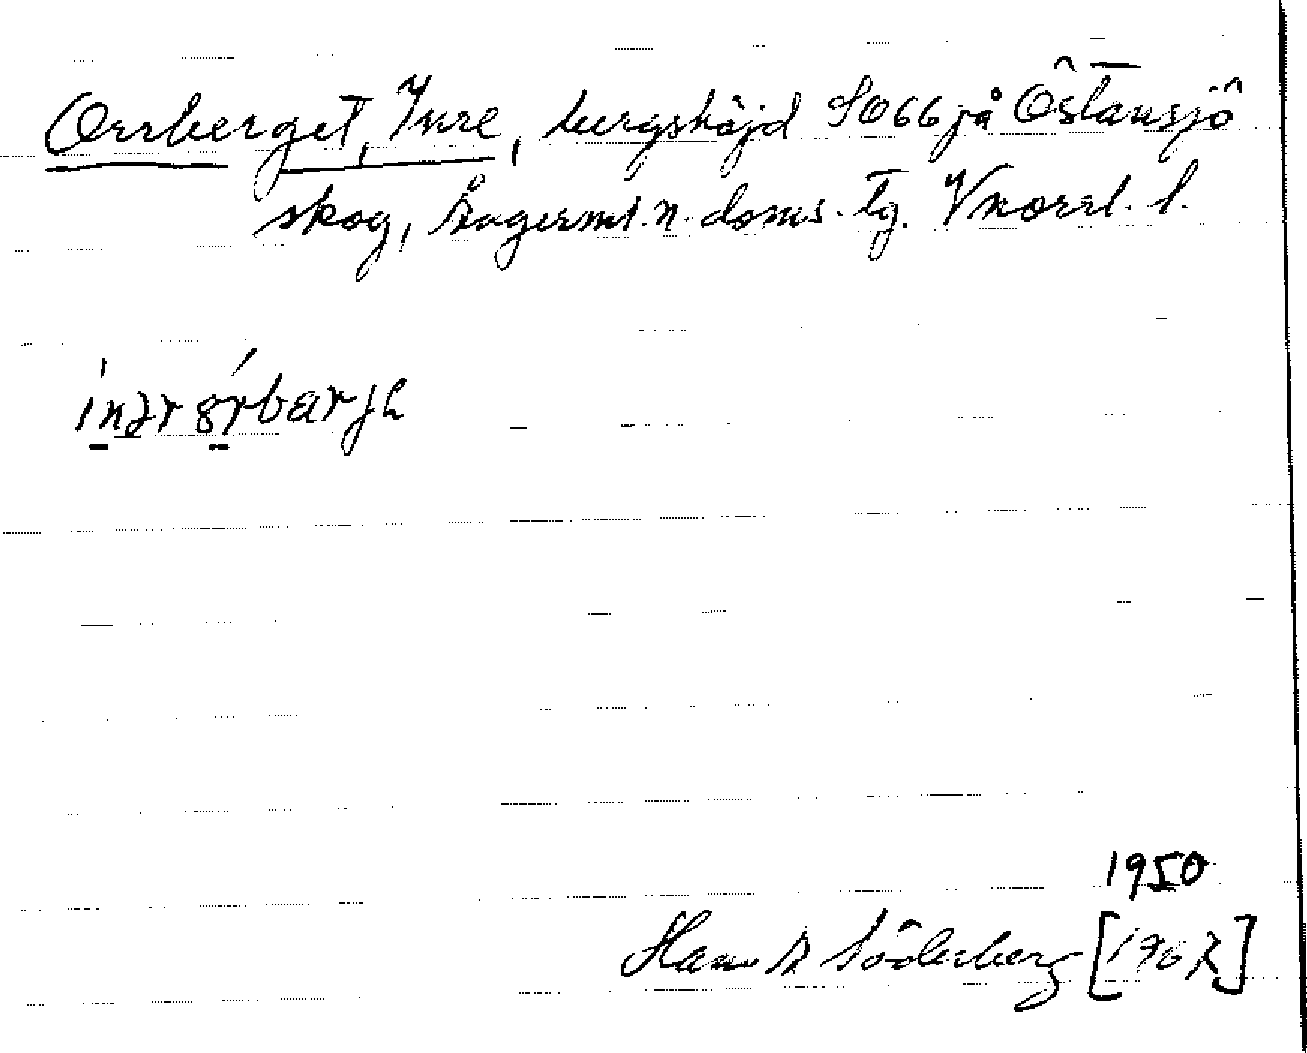 Orrberget, Inre, bergshöjd SO66 på Östansjö
skog, Ångerml. n. doms. tg. Vnorrl. l.
1950
Hans Söderberg [1967]